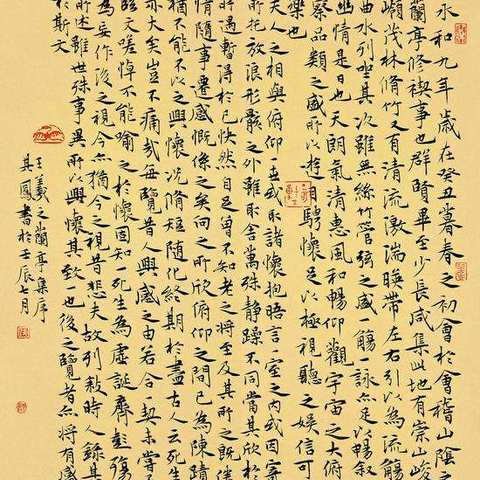 永和九年歲在癸丑暮春之初會於會稽山陰之
蘭亭修禊事也群賢畢至少長咸集此地有崇山峻
嶺茂林脩竹又有清流激湍暎帶左右引以為流觴
曲水列坐其次雖無絲竹管弦之盛觴詠亦足以暢敘
幽情是日也天朗氣清惠風和暢仰觀宇宙之大俯
察品類之盛所以遊騁懷足以極視聽之娛信可
樂也
夫人之相與俯仰一世或取諸懷抱晤言一室之內或因寄
所托放浪形骸之外雖取舍萬殊靜躁不同當其欣於
所遇暫得於己快然自足曾不知老之將至及其所之既倦
情隨事遷感慨係之矣向之所欣俯仰之間已為陳蹟
猶不能不以之興懷況脩短隨化終期於盡古人云死生
亦大矣豈不痛哉每覽昔人興感之由若合一契未嘗不
臨文嗟悼不能喻之於懷固知一死生為虛誕齊彭殤
為妄作後之視今亦猶今之視昔悲夫故列敘時人錄其
所述雖世殊事異所以興懷其致一也後之覽者亦將有感
於斯文
王羲之蘭亭集序
其鳳書於壬辰七月